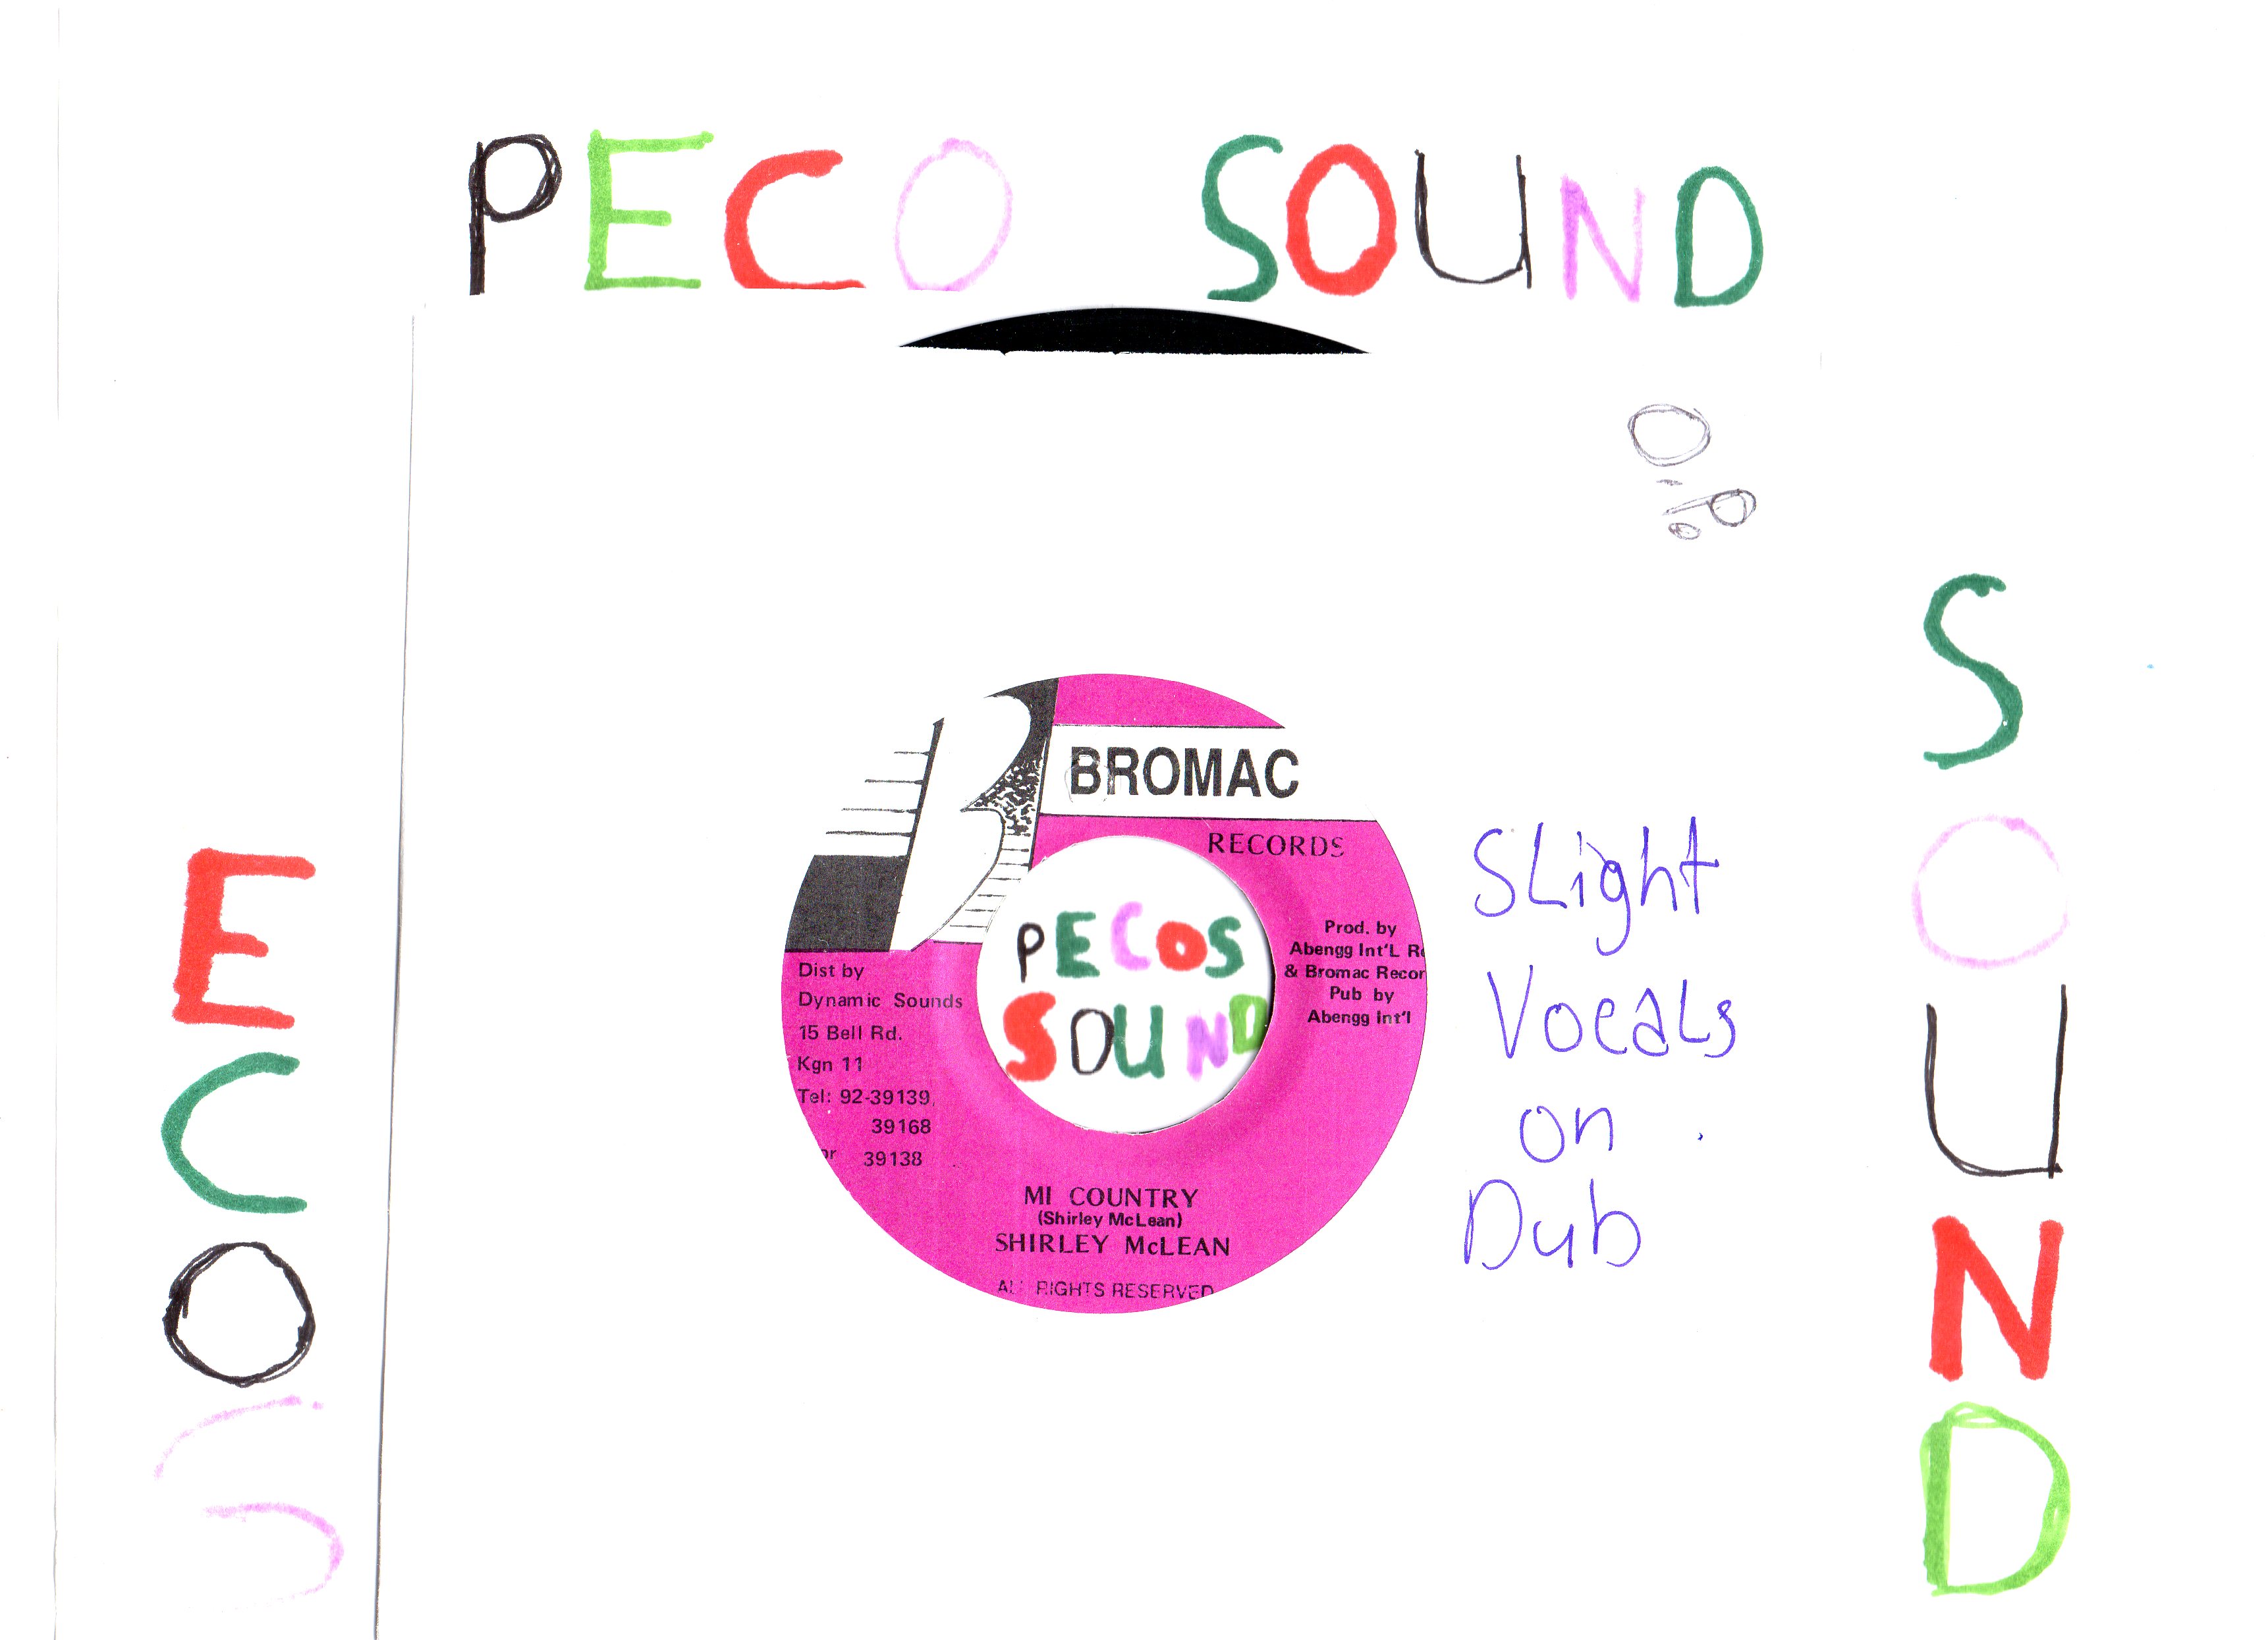 PECO SOUND
BROMAC
RECORDS
Prod. by
Abengg Int'L Re
& Bromac Recor
Pub by
Abengg Int'l
PECOS
SOUND
Dist by
Dynamic Sounds
15 Bell Rd.
Kgn 11
Tel: 92-39139,
39168
or 39138
MI COUNTRY
(Shirley McLean)
SHIRLEY McLEAN
ALL RIGHTS RESERVED
SLight
Vocals
on
Dub
ECOS
SOUND